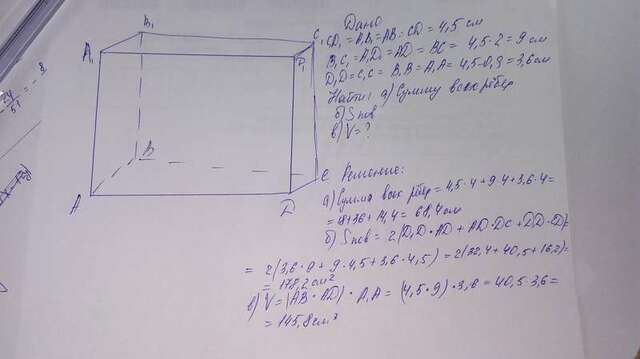 Дано
C₁D₁ = A₁B₁ = AB = CD = 4,5 см
B₁C₁ = A₁D₁ = AD = BC = 4,5·2 = 9 см
D₁D = C₁C = B₁B = A₁A = 4,5·0,8 = 3,6 см
Найти: а) Сумму всех рёбер
б) Sпов
в) V = ?
B₁
C₁
A₁
D₁
B
C
A
D
Решение:
а) Сумма всех рёбер = 4,5·4 + 9·4 + 3,6·4 =
= 18+36+14,4 = 68,4 см
б) Sпов = 2(D₁D·AD + AD·DC + DD₁·DC)=
= 2(3,6·9 + 9·4,5 + 3,6·4,5) = 2(32,4 + 40,5 + 16,2)=
= 178,2 см²
в) V = (AB·AD)·A₁A = (4,5·9)·3,6 = 40,5·3,6 =
= 145,8 см³